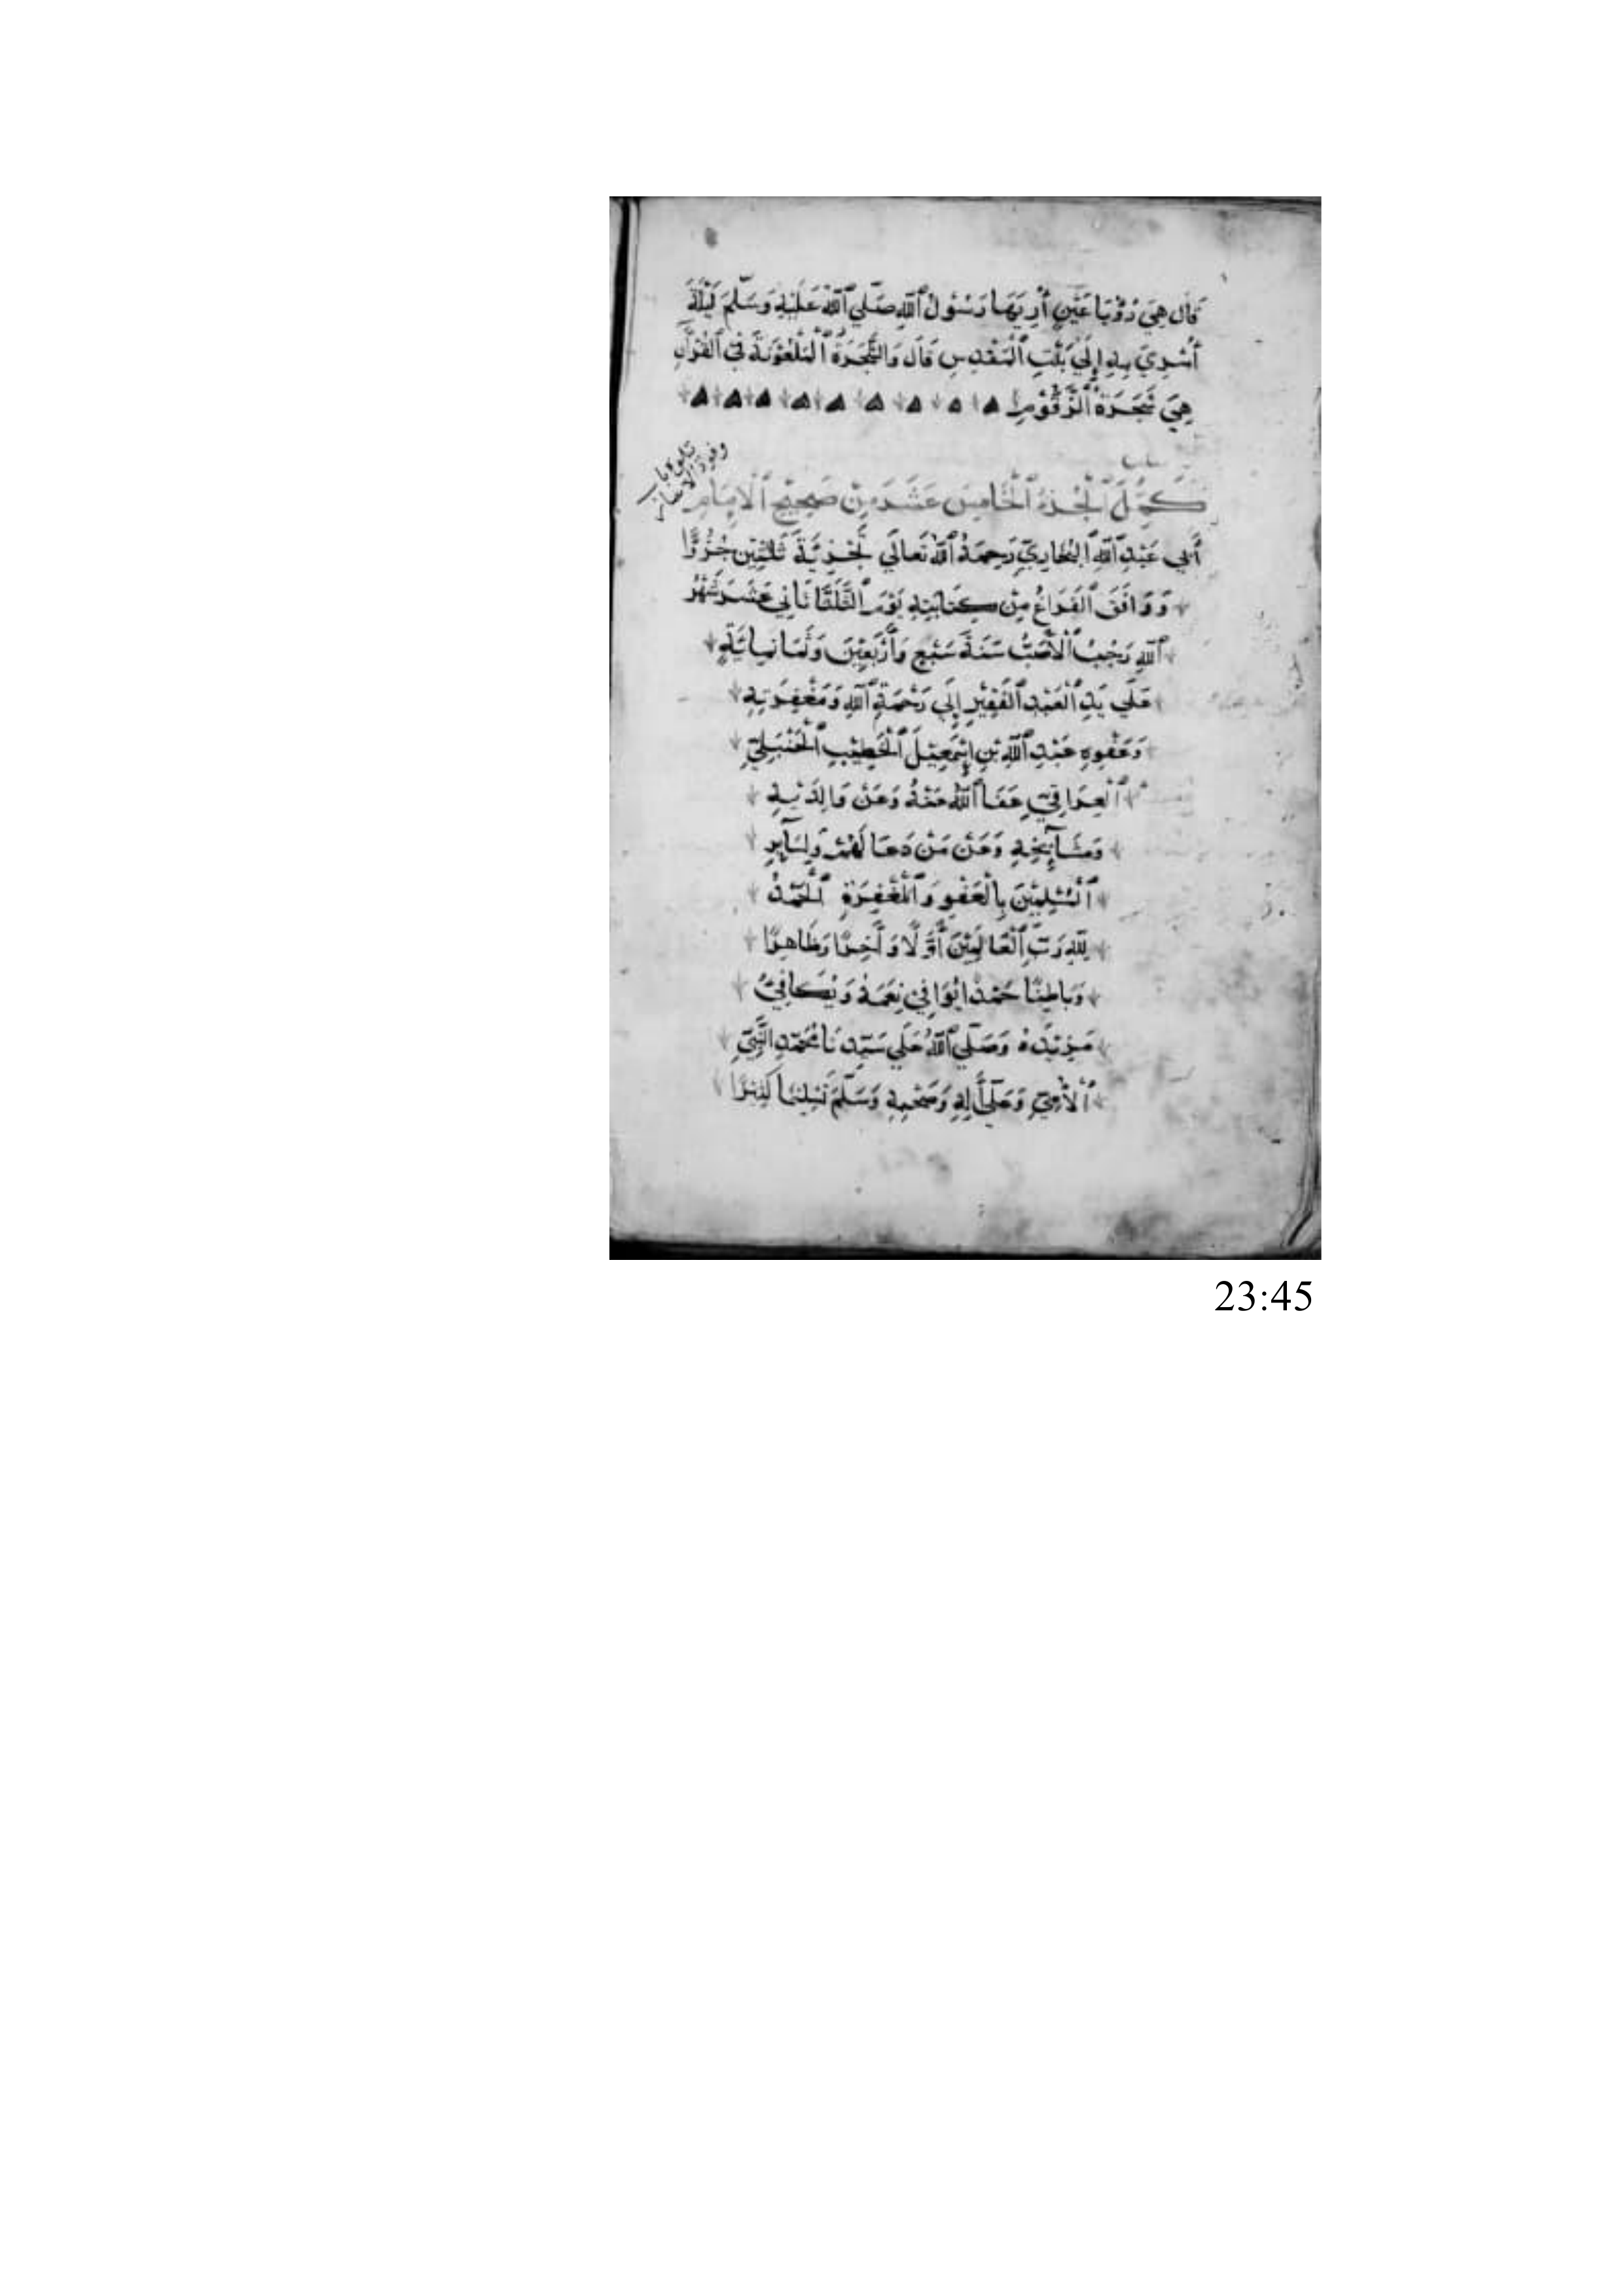 قَالَ هِيَ رُؤْيَا عَيْنٍ أُرِيَهَا رَسُولُ ٱللَّهِ صَلَّي ٱللَّهُ عَلَيْهِ وَسَلَّمَ لَيْلَةَ
أُسْرِيَ بِهِ إِلَي بَيْتِ ٱلْمَقْدِسِ قَالَ وَالشَّجَرَةُ ٱلْمَلْعُوْنَةُ فِي ٱلْقُرْآنِ
هِيَ شَجَرَةُ ٱلزَّقُّوْمِ
كَمُلَ ٱلْجُزْءُ ٱلْخَامِسَ عَشَرَ مِنْ صَحِيْحِ ٱلْإِمَامِ
أَبِي عَبْدِ ٱللَّهِ ٱلْبُخَارِيِّ رَحِمَهُ ٱللَّهُ تَعَالَي تَجْزِيَةَ ثَلٰثِيْنَ جُزْءًا
وَوَافَقَ ٱلْفَرَاغُ مِنْ كِتَابَتِهِ يَوْمَ ٱلثَّلَثَا ثَانِي عَشَرَ شَهْرُ
ٱللَّهِ رَجَبُ ٱلْأَصَبُّ سَنَةَ سَبْعٍ وَأَرْبَعِيْنَ وَثَمَانِمِائَةٍ
عَلَي يَدِ ٱلْعَبْدِ ٱلْفَقِيْرِ إِلَي رَحْمَةِ ٱللَّهِ وَمَغْفِرَتِهِ
وَعَفْوِهِ عَبْدِ ٱللَّهِ بْنِ إِسْمَعِيْلَ ٱلْخَطِيْبِ ٱلْحَنْبَلِيِّ
ٱلْعِرَاقِيِّ عَفَا ٱللَّهُ عَنْهُ وَعَنْ وَالِدَيْهِ
وَمَشَآئِخِهِ وَعَنْ مَنْ دَعَا لَهُمْ وَلِسَآئِرِ
ٱلْمُسْلِمِيْنَ بِالْعَفْوِ وَٱلْمَغْفِرَةِ ٱلْحَمْدُ
لِلَّهِ رَبِّ ٱلْعَالَمِيْنَ أَوَّلًا وَآخِرًا وَظَاهِرًا
وَبَاطِنًا حَمْدًا يُوَافِي نِعَمَهُ وَيُكَافِيُ
مَزِيْدَهُ وَصَلَّي ٱللَّهُ عَلَي سَيِّدِنَا مُحَمَّدٍ النَّبِيِّ
ٱلْأُمِّيِّ وَعَلَي آلِهِ وَصَحْبِهِ وَسَلَّمَ تَسْلِيْمًا كَثِيْرًا
23:45